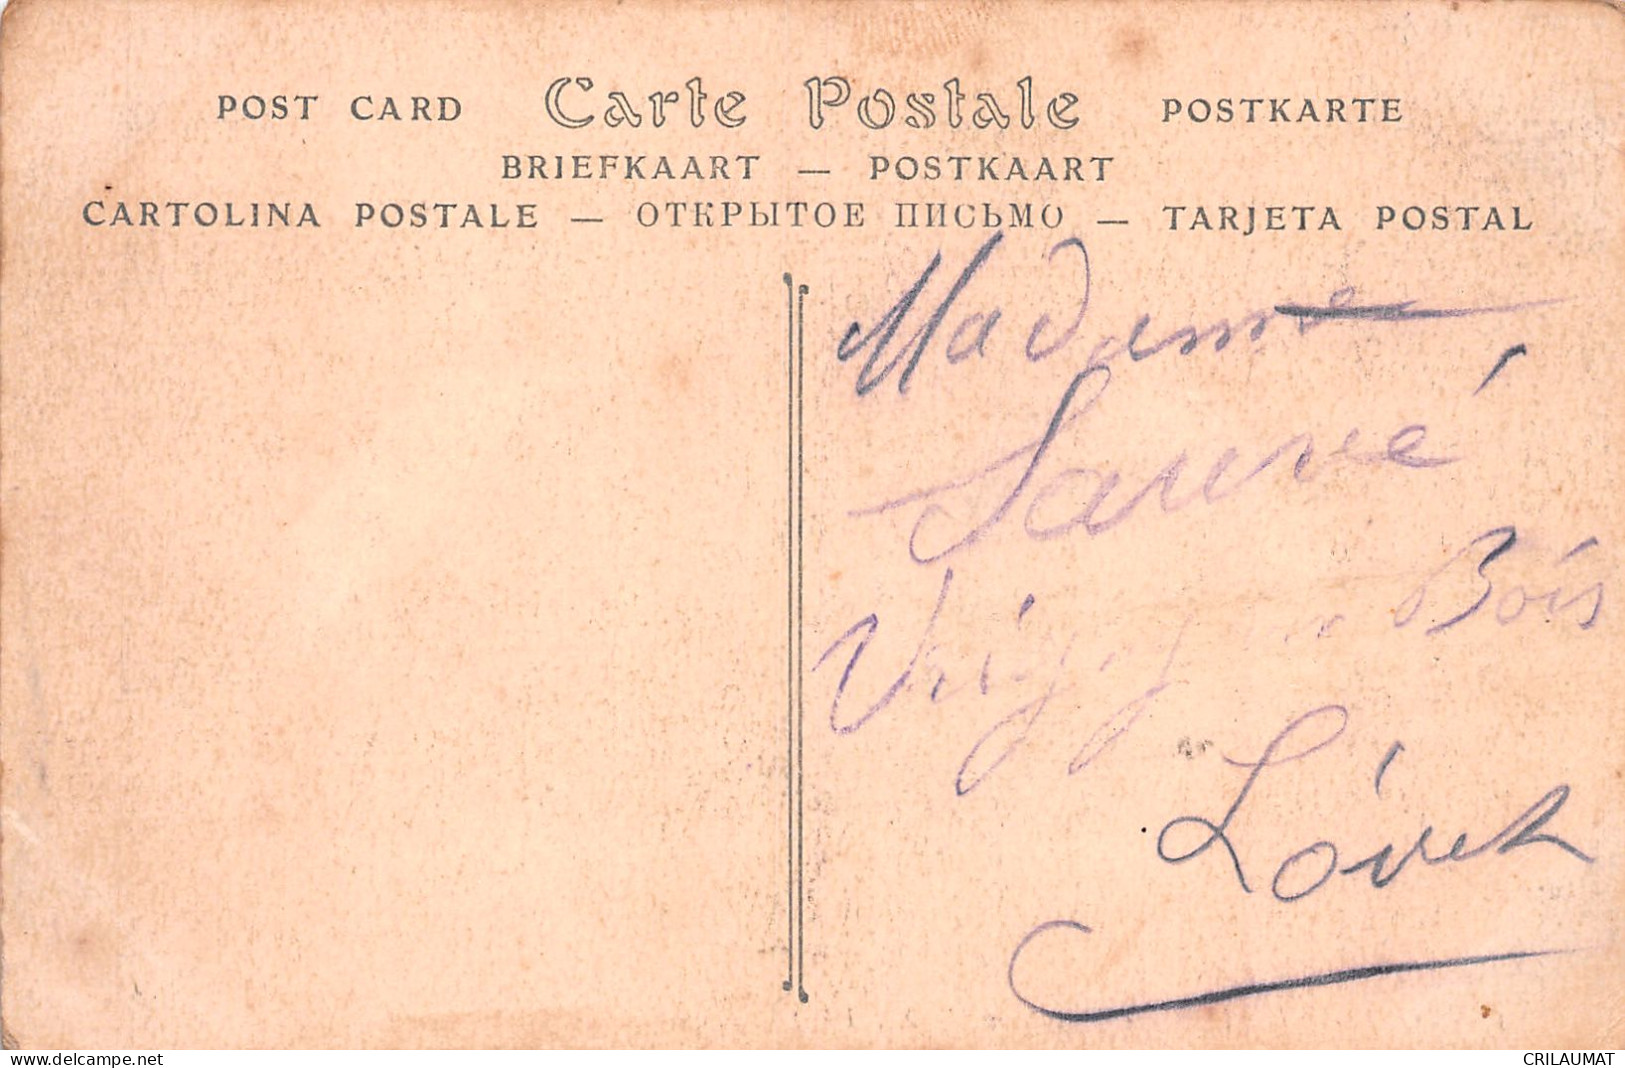 POST CARD Carte Postale POSTKARTE
BRIEFKAART — POSTKAART
CARTOLINA POSTALE — ОТКРЫТОЕ ПИСЬМО — TARJETA POSTAL
Madame
Sauvé
Bois
Loiret
www.delcampe.net
CRILAUMAT